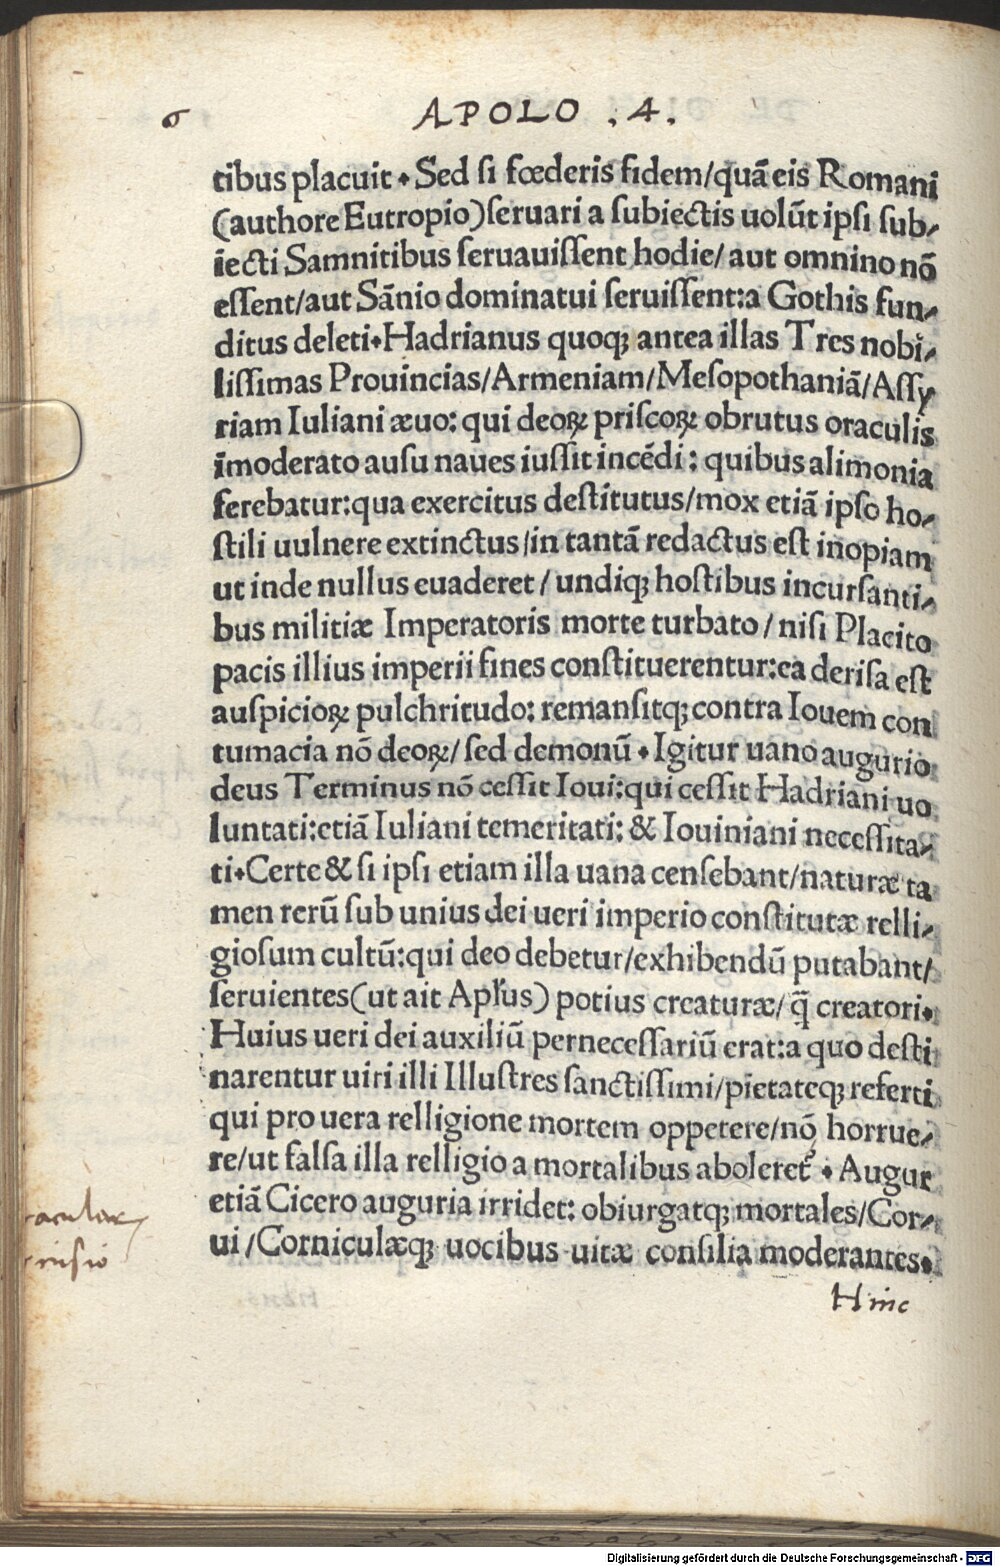 6
APOLO . 4 .
tibus placuit . Sed ſi fœderis fidem/quā eis Romani
(authore Eutropio) ſeruari a ſubiectis uolūt ipſi ſub-
iecti Samnitibus ſeruauiſſent hodie/ aut omnino nō
eſſent/aut Sānio dominatui ſeruiſſent:a Gothis fun-
ditus deleti.Hadrianus quoqꝫ antea illas Tres nobi-
liſſimas Prouincias/Armeniam/Meſopothaniā/Aſſy
riam Iuliani æuo: qui deoꝝ priſcoꝝ obrutus oraculis
īmoderato auſu naues iuſſit incēdi: quibus alimonia
ferebatur:qua exercitus deſtitutus/mox etiā ipſo ho-
ſtili uulnere extinctus/in tantā redactus eſt inopiam
ut inde nullus euaderet/ undiqꝫ hoſtibus incurſanti-
bus militiæ Imperatoris morte turbato/ niſi Placito
pacis illius imperii fines conſtituerentur:ea deriſa eſt
auſpicioꝝ pulchritudo: remanſitqꝫ contra Iouem con
tumacia nō deoꝝ/ ſed demonū . Igitur uano augurio
deus Terminus nō ceſſit Ioui:qui ceſſit Hadriani uo
luntati:etiā Iuliani temeritati: & Iouiniani neceſſita-
ti.Certe & ſi ipſi etiam illa uana cenſebant/naturæ ta
men rerū ſub unius dei ueri imperio conſtitutæ relli-
gioſum cultū:qui deo debetur/exhibendū putabant/
ſeruientes(ut ait Apl'us) potius creaturæ/ q̄ creatori.
Huius ueri dei auxiliū perneceſſariū erat:a quo deſti
narentur uiri illi Illuſtres ſanctiſſimi/pietateqꝫ referti
qui pro uera relligione mortem oppetere/nō horrue-
re/ut falſa illa relligio a mortalibus aboleret᷑ . Augur
etiā Cicero auguria irridet: obiurgatqꝫ mortales/Cor-
ui/Corniculæqꝫ uocibus uitæ conſilia moderantes.
Hinc